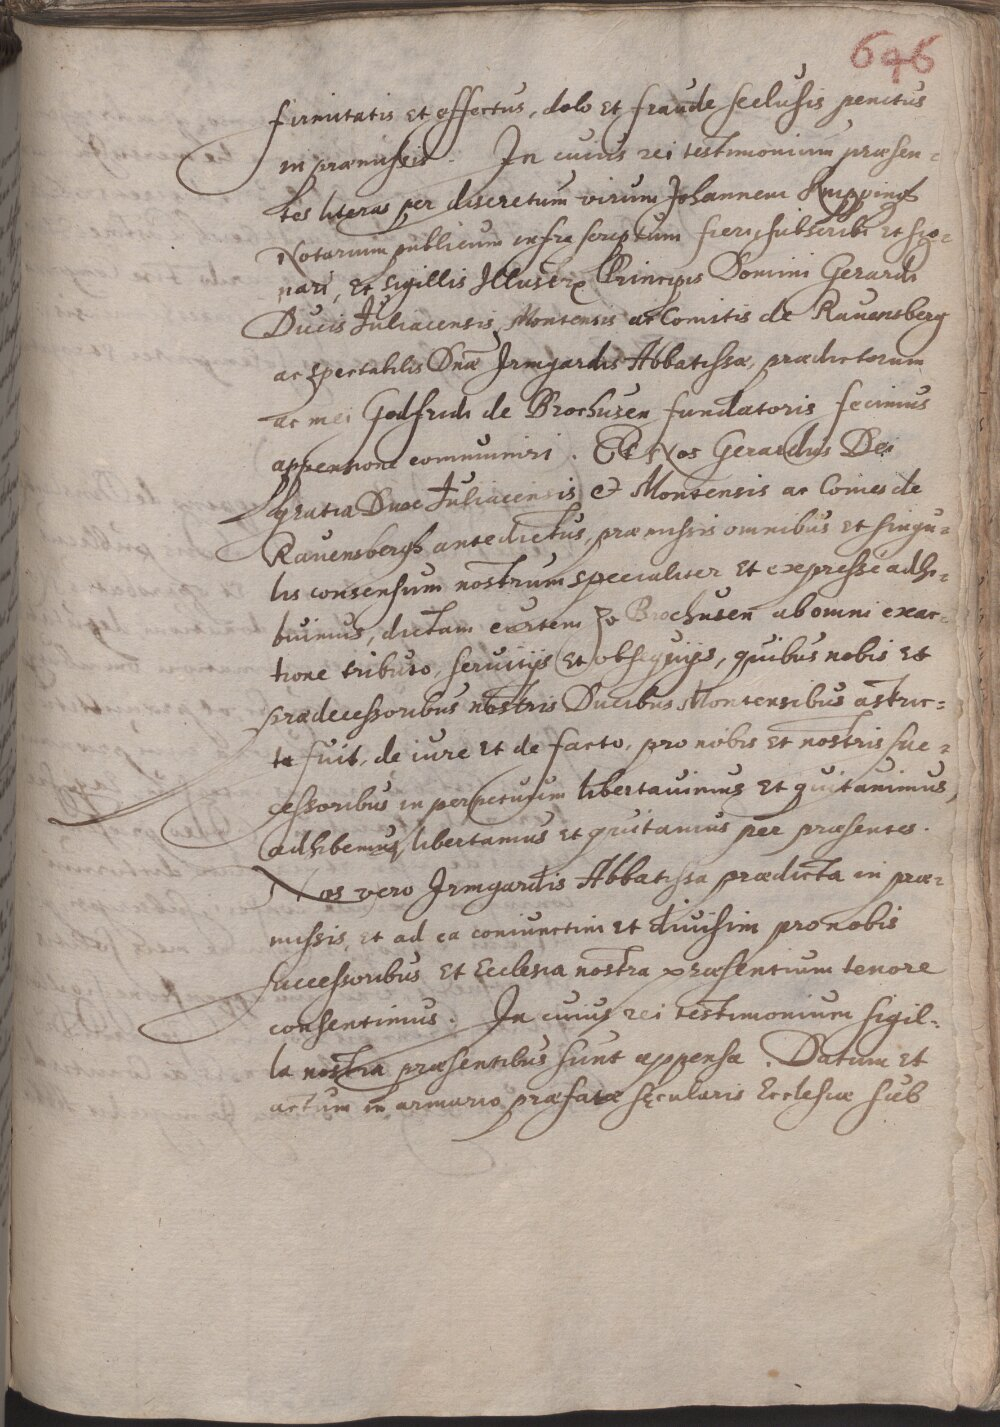 646
firmitatis et effectus, dolo et fraude seclusis penitus
in præmissis. In cuius rei testimonium præsen-
tes literas per discretum virum Johannem
Notarium publicum infra scriptum fieri, subscribi et sig-
nari, et sigillis Illustr. Principis Domini Gerardi
Ducis Juliacensis, Montensis ac Comitis de Rauensberg
ac spectabilis Dnæ Irmgardis Abbatissæ, prædictorum
ac mei Godfridi de Brochusen fundatoris fecimus
appensione communiri. Et Nos Gerardus Dei
gratia Dux Juliacensis et Montensis ac Comes de
Rauensbergh antedictus, præmissis omnibus et singu-
lis consensum nostrum specialiter et expressè adhi-
buimus, dictam curtem zo Brochusen ab omni exac-
tione tributo, seruitijs et obsequijs, quibus nobis et
prædecessoribus nostris Ducibus Montensibus astric-
ta fuit, de iure et de facto, pro nobis et nostris suc-
cessoribus in perpetuum libertauimus et quitauimus,
adhibemus, libertamus et quitamus per præsentes.
Nos vero Irmgardis Abbatissa prædicta in præ-
missis, et ad ea coniunctim et diuisim pro nobis
successoribus et Ecclesia nostra præsentium tenore
consentimus. In cuius rei testimonium sigil-
la nostra præsentibus sunt appensa. Datum et
actum in armario præfatæ sęcularis Ecclesiæ sub